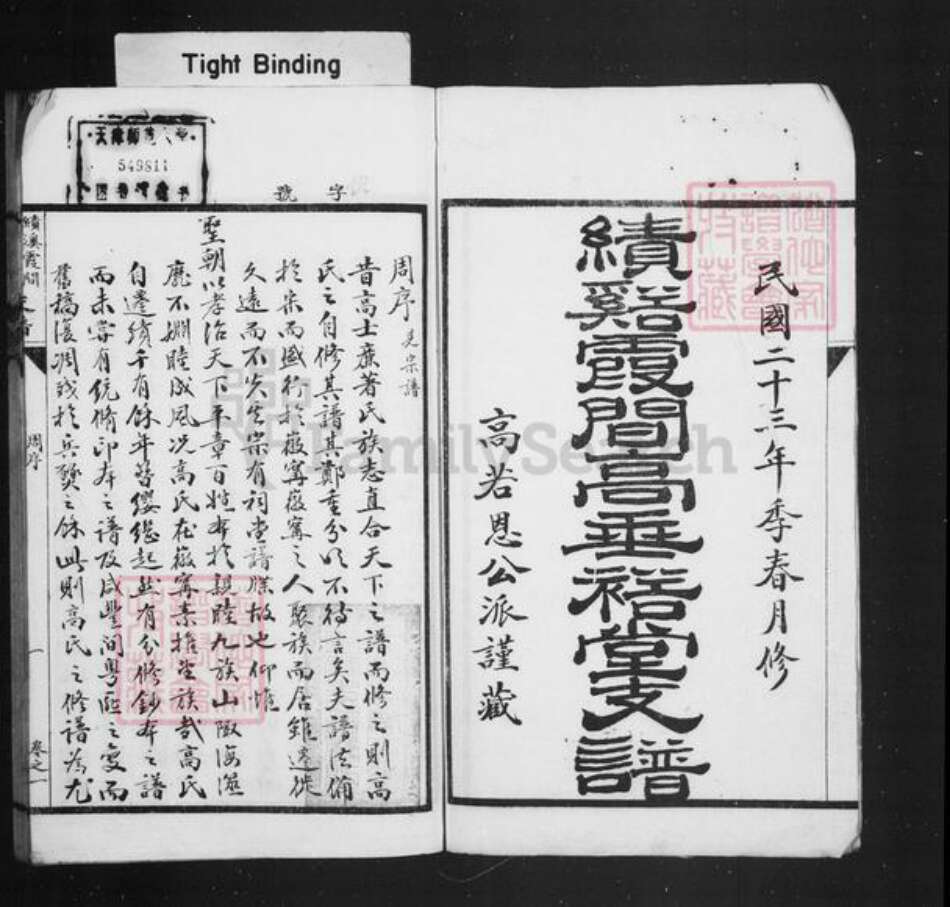 Tight Binding
民國二十三年季春月修
績谿霞間高垂裕堂支譜
高若恩公派謹藏
549811
字號
周序 見宗譜
昔高士廉著氏族志直合天下之譜而修之則高
氏之自修其譜其鄭重分以不待言矣夫譜法備
於宋而盛行於徽寧徽寧之人聚族而居雖遷徙
久遠而不失其宗有祠堂譜牒故也仰惟
聖朝以孝治天下平章百姓本於親睦九族山陬海澨
靡不嫻睦成風况高氏在徽寧素推望族哉高氏
自遷績千有餘年簪纓繼起然有分修鈔本之譜
而未嘗有統脩印本之譜及咸豐間粵匪之變而
舊稿復凋殘於兵燹之餘此則高氏之修譜為尤
周序
一
卷之一
FamilySearch